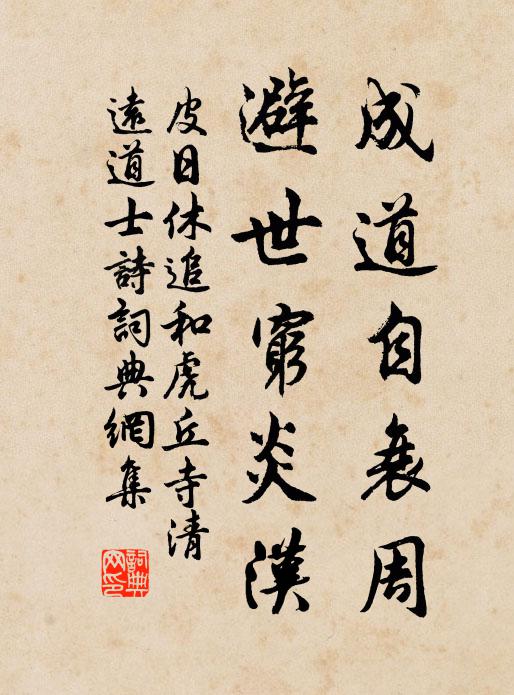 成道自衰周
避世窮炎漢
皮日休追和虎丘寺清
遠道士詩詞典網集
詞典網印